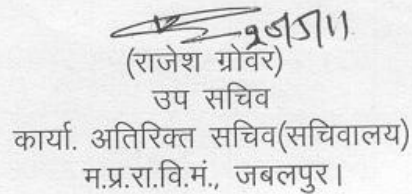 20/5/11
(राजेश ग्रोवर)
उप सचिव
कार्या. अतिरिक्त सचिव(सचिवालय)
म.प्र.रा.वि.मं., जबलपुर।